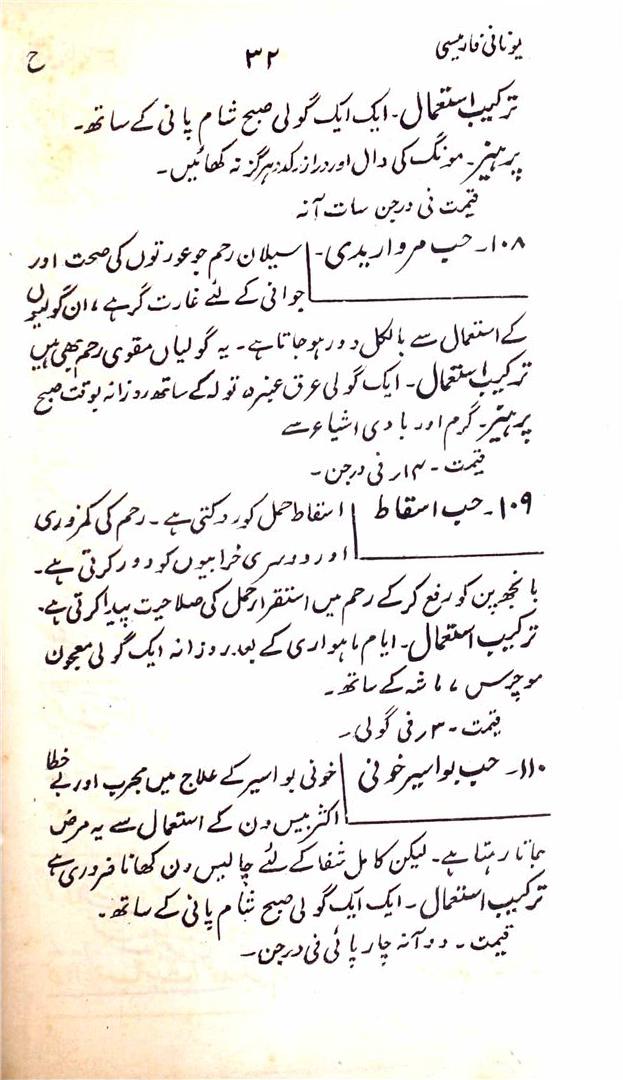 یونانی فارمیسی ۳۲ ح
ترکیب استعمال۔ ایک ایک گولی صبح شام پانی کے ساتھ۔
پرہیز۔ مونگ کی دال اور دراز کدو ہرگز نہ کھائیں۔
قیمت فی درجن سات آنہ
۱۰۸۔ حب مرواریدی۔ سیلان رحم جو عورتوں کی صحت اور
جوانی کے لئے غارت گر ہے، ان گولیوں
کے استعمال سے بالکل دور ہو جاتا ہے۔ یہ گولیاں مقوی رحم بھی ہیں
ترکیب استعمال۔ ایک گولی عرق عنبر ۵ تولہ کے ساتھ روزانہ بوقت صبح
پرہیز۔ گرم اور بادی اشیاء سے
قیمت۔ ۱۴؍ فی درجن۔
۱۰۹۔ حب اسقاط اسقاط حمل کو روکتی ہے۔ رحم کی کمزوری
اور دوسری خرابیوں کو دور کرتی ہے۔
بانجھ پن کو رفع کر کے رحم میں استقرار حمل کی صلاحیت پیدا کرتی ہے۔
ترکیب استعمال۔ ایام ماہواری کے بعد روزانہ ایک گولی معجون
موچرس ۷ ماشہ کے ساتھ۔
قیمت۔ ۳؍ فی گولی۔
۱۱۰۔ حب بواسیر خونی خونی بواسیر کے علاج میں مجرب اور بے خطا
اکثر بیس دن کے استعمال سے یہ مرض
جاتا رہتا ہے۔ لیکن کامل شفا کے لئے چالیس دن کھانا ضروری ہے
ترکیب استعمال۔ ایک ایک گولی صبح شام پانی کے ساتھ۔
قیمت۔ دو آنہ چار پائی فی درجن۔